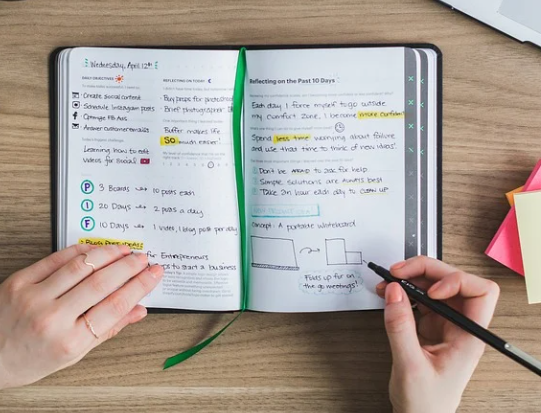 Wednesday, April 12th
DAILY OBJECTIVES
Create social content
Schedule Instagram posts
Optimize FB Ads
Answer customer emails
Learning how to edit
videos for social
P 3 Boards 10 posts each
I 20 Days 2 posts a day
F 10 Days 1 video, 1 blog post per day
Blog Post Ideas
for Entrepreneurs
to start a business
REFLECTING ON TODAY
Buy props for photoshoot
Brief photographer
Buffer makes life
SO much easier!
Reflecting on the Past 10 Days
Each day I force myself to go outside
my comfort zone, I become more confident
Spend less time worrying about failure
and use that time to think of new ideas!
Don't be AFRAID to ask for help
Simple solutions are ALWAYS best
Take an hour each day to CLEAN UP
Concept: A portable whiteboard
Folds up for on
the go meetings!